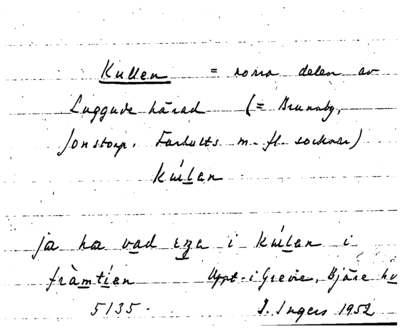 Kullen = norra delen av
Luggude härad (= Brunnby,
Jonstorp, Farhults m. fl. socknar)
kúlan
ja ha vad i kúlan i
framtían Uppt. i Grevie, Bjäre hd
5135. I. Ingers 1952